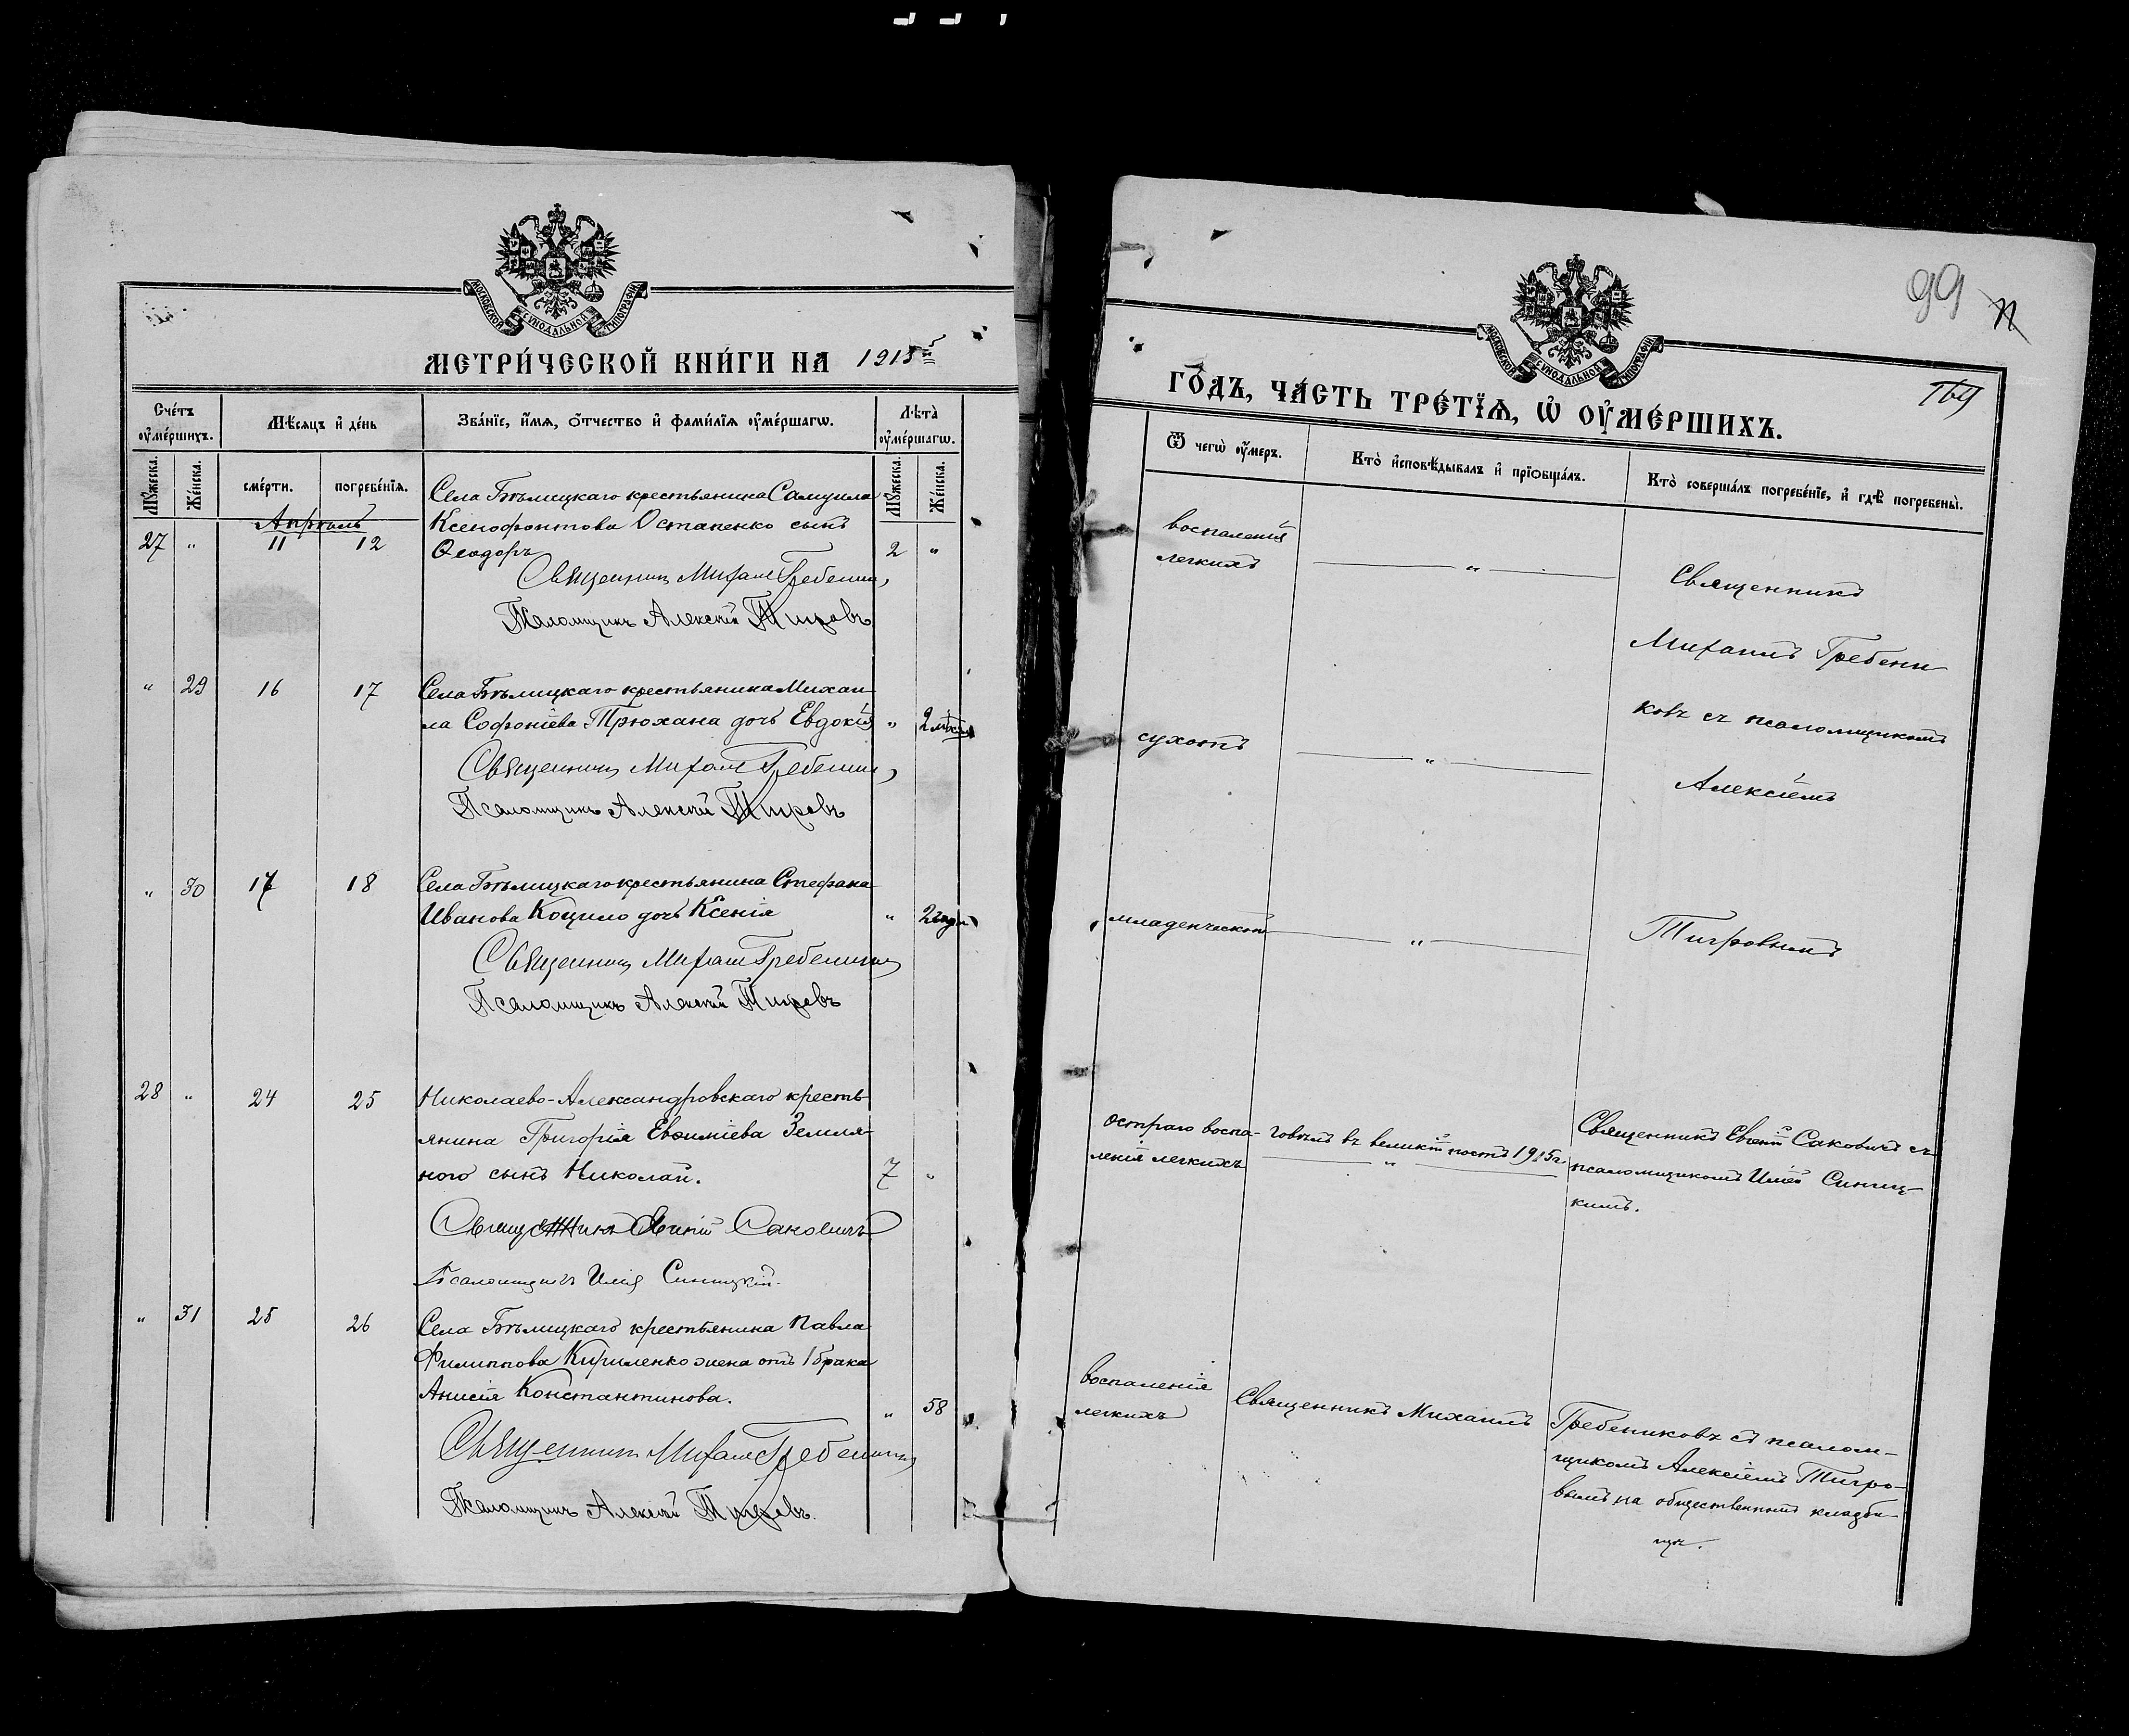 МОСКОВСКОЙ СѴНОДАЛЬНОЙ ТИПОГРАФІИ
МЕТРИ́ЧЕСКОЙ КНИ́ГИ НА 1915
Сче́тъ ᲂу҆ме́ршихъ.
Мѣ́сяцъ и҆ де́нь
Зва́нїе, и҆́мѧ, ѻ҆́тчество и҆ фами́лїѧ ᲂу҆ме́ршагѡ.
Лѣта̀ ᲂу҆ме́ршагѡ.
Мꙋ́жеска.
Же́нска.
сме́рти.
погребе́нїѧ.
Мꙋ́жеска.
Же́нска.
Апрѣль
27 " 11 12
Села Бѣлицкаго крестьянина Самуила
Ксенофонтова Остапенко сынъ
Ѳеодоръ
2 "
Священникъ Михаил Гребеник
Псаломщикъ Алексѣй Тигровъ
" 29 16 17
Села Бѣлицкаго крестьянина Михаи-
ла Софоніева Трюхана дочь Евдокія
" 2 мѣсяц
Священникъ Михаил Гребеник
Псаломщикъ Алексѣй Тигровъ
" 30 17 18
Села Бѣлицкаго крестьянина Стефана
Иванова Коцило дочь Ксенія
" 2 года
Священникъ Михаил Гребеник
Псаломщикъ Алексѣй Тигровъ
28 " 24 25
Николаево-Александровскаго кресть-
янина Григорія Евфиміева Земля-
ного сынъ Николай.
7 "
Священникъ Евгеній Саковичъ
Псаломщикъ Илія Синицкій.
" 31 25 26
Села Бѣлицкаго крестьянина Павла
Филиппова Кириленко жена отъ 1 брака
Анисія Константинова.
" 58
Священникъ Михаил Гребеник
Псаломщикъ Алексѣй Тигровъ.
99
169
МОСКОВСКОЙ СѴНОДАЛЬНОЙ ТИПОГРАФІИ
ГО́ДЪ, ЧА́СТЬ ТРЕ́ТЇѦ, Ѡ҆ ОУ҆МЕ́РШИХЪ.
Ѿ чегѡ̀ ᲂу҆́меръ.
Кто̀ и҆сповѣ́дывалъ и҆ прїѡбща́лъ.
Кто̀ соверша́лъ погребе́нїе, и҆ гдѣ̀ погребены̀.
воспаленія
легкихъ
"
Священникъ
Михаилъ Гребени
ковъ съ псаломщикомъ
Алексіемъ
Тигровымъ
сухотъ
"
младенческой
"
остраго воспа-
ленія легкихъ
говѣлъ въ великій постъ 1915 г.
"
Священникъ Евгеній Саковичъ съ
псаломщикомъ Иліей Синиц-
кимъ.
воспаленія
легкихъ
Священникъ Михаилъ
Гребениковъ съ псалом-
щикомъ Алексіемъ Тигро-
вымъ на общественномъ кладби-
щѣ.